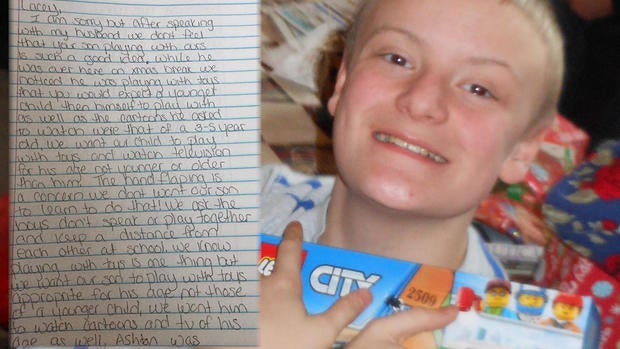 Lacey,
I am sorry but after speaking
with my husband we don't feel
that your son playing with ours
is such a good idea. While he
was over here on xmas break we
noticed he was playing with toys
that you would expect a younger
child then himself to play with
as well as the cartoons he asked
to watch were that of a 3-5 year
old, we want our child to play
with toys and watch television
for his age not younger or older
than him. The hand flapping is
a concern we don't want our son
to learn to do that! We ask the
boys don't speak or play together
and keep a distance from
each other at school. We know
playing with toys is one thing but
we want our son to play with toys
appropriate for his age not those
of a younger child, we want him
to watch cartoons and tv of his
age as well. Ashton was
CITY
2509